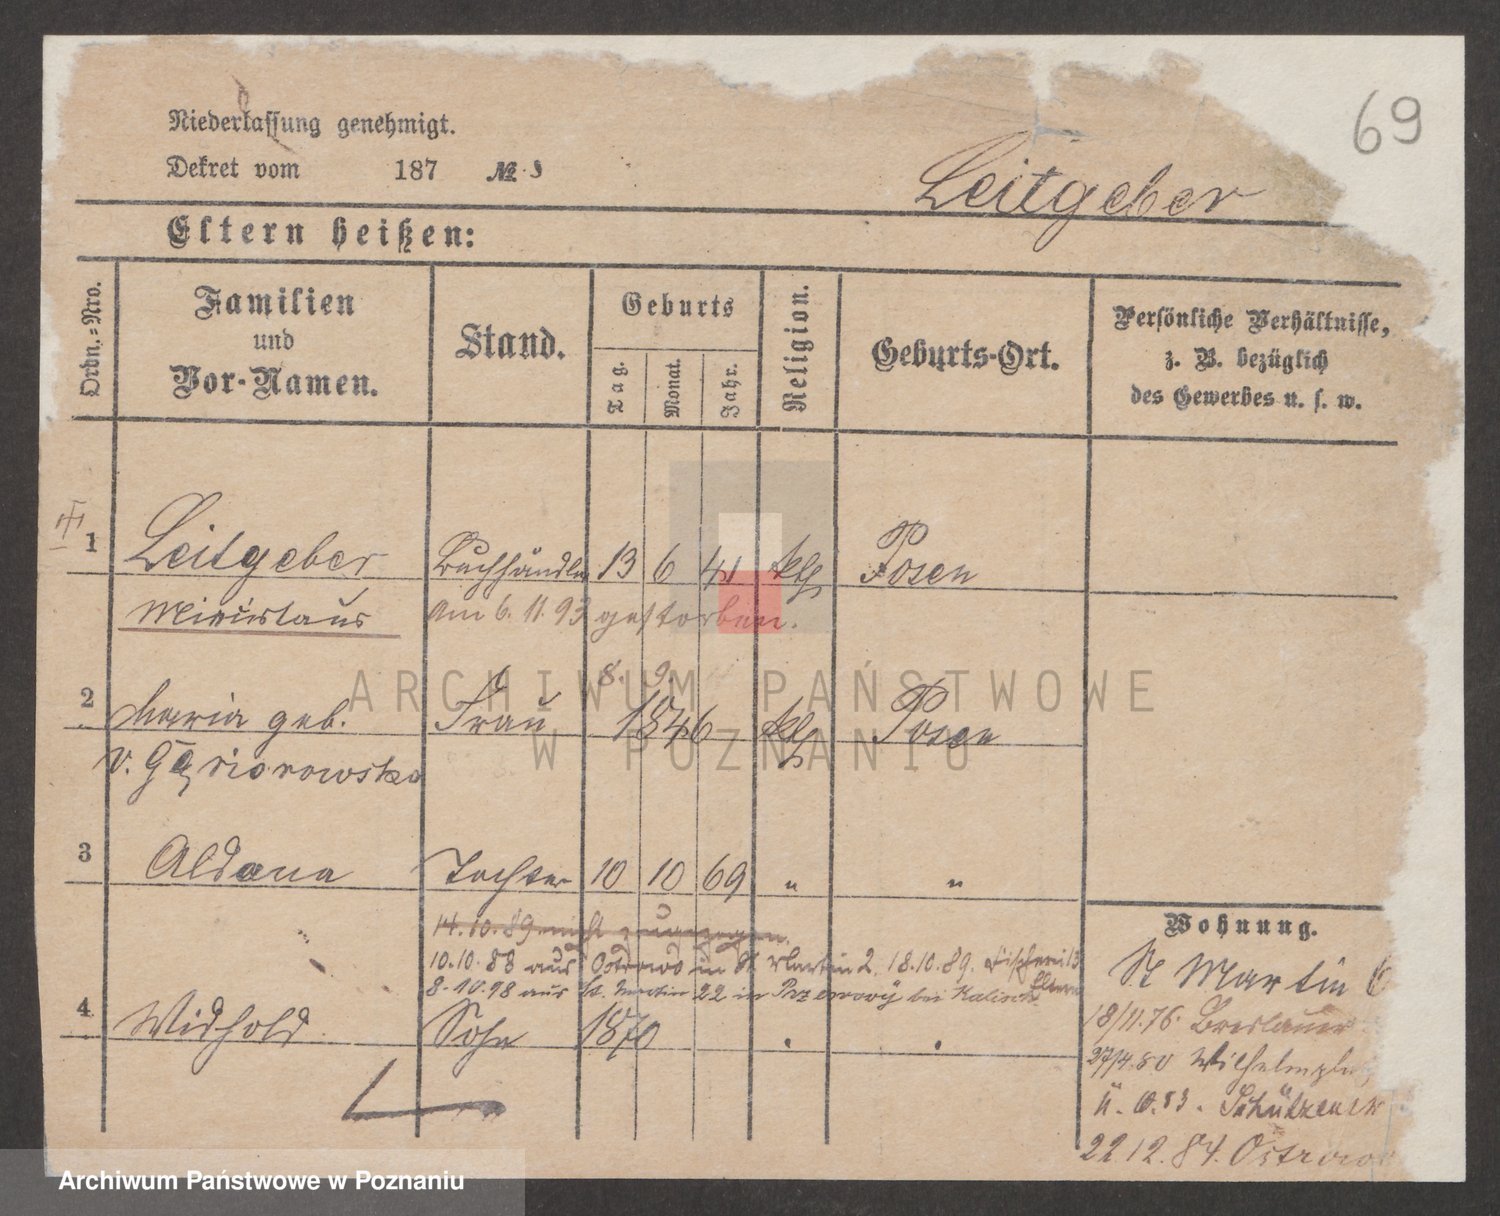 69
Niederlassung genehmigt.
Dekret vom 187 №
Leitgeber
Eltern heißen:
Ordn.-Nro.
Familien
und
Vor-Namen.
Stand.
Geburts
Tag.
Monat.
Jahr.
Religion.
Geburts-Ort.
Persönliche Verhältnisse,
z. B. bezüglich
des Gewerbes u. s. w.
1 Leitgeber Buchhändler 13 6 41 kth Posen
am 6.11.93 gestorben.
8. 9.
2 Maria geb. Frau 1846 kth Posen
v. Gąsiorowska
3 Aldona Tochter 10 10 69 " "
14.10.89 nicht zugezogen.
10.10.88 aus Ostrowo in St Martin 2. 18.10.89. Fischerei 13
Eltern
8.10.98 aus St. Martin 22 in bei Kalisch
4 Widhold Sohn 1870
Wohnung.
St Martin
18/11.76. Breslauer
27/4.80 Wilhelmspl
83. Schützenstr
22.12.84. Ostrowo
ARCHIWUM PAŃSTWOWE
W POZNANIU
Archiwum Państwowe w Poznaniu